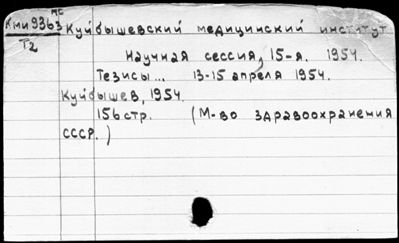 МС
Кми9363 Куйбышевский медицинский институт
Т2
Научная сессия, 15-я. 1954.
Тезисы... 13-15 апреля 1954.
Куйбышев, 1954.
156 стр. (М-во здравоохранения
СССР.)